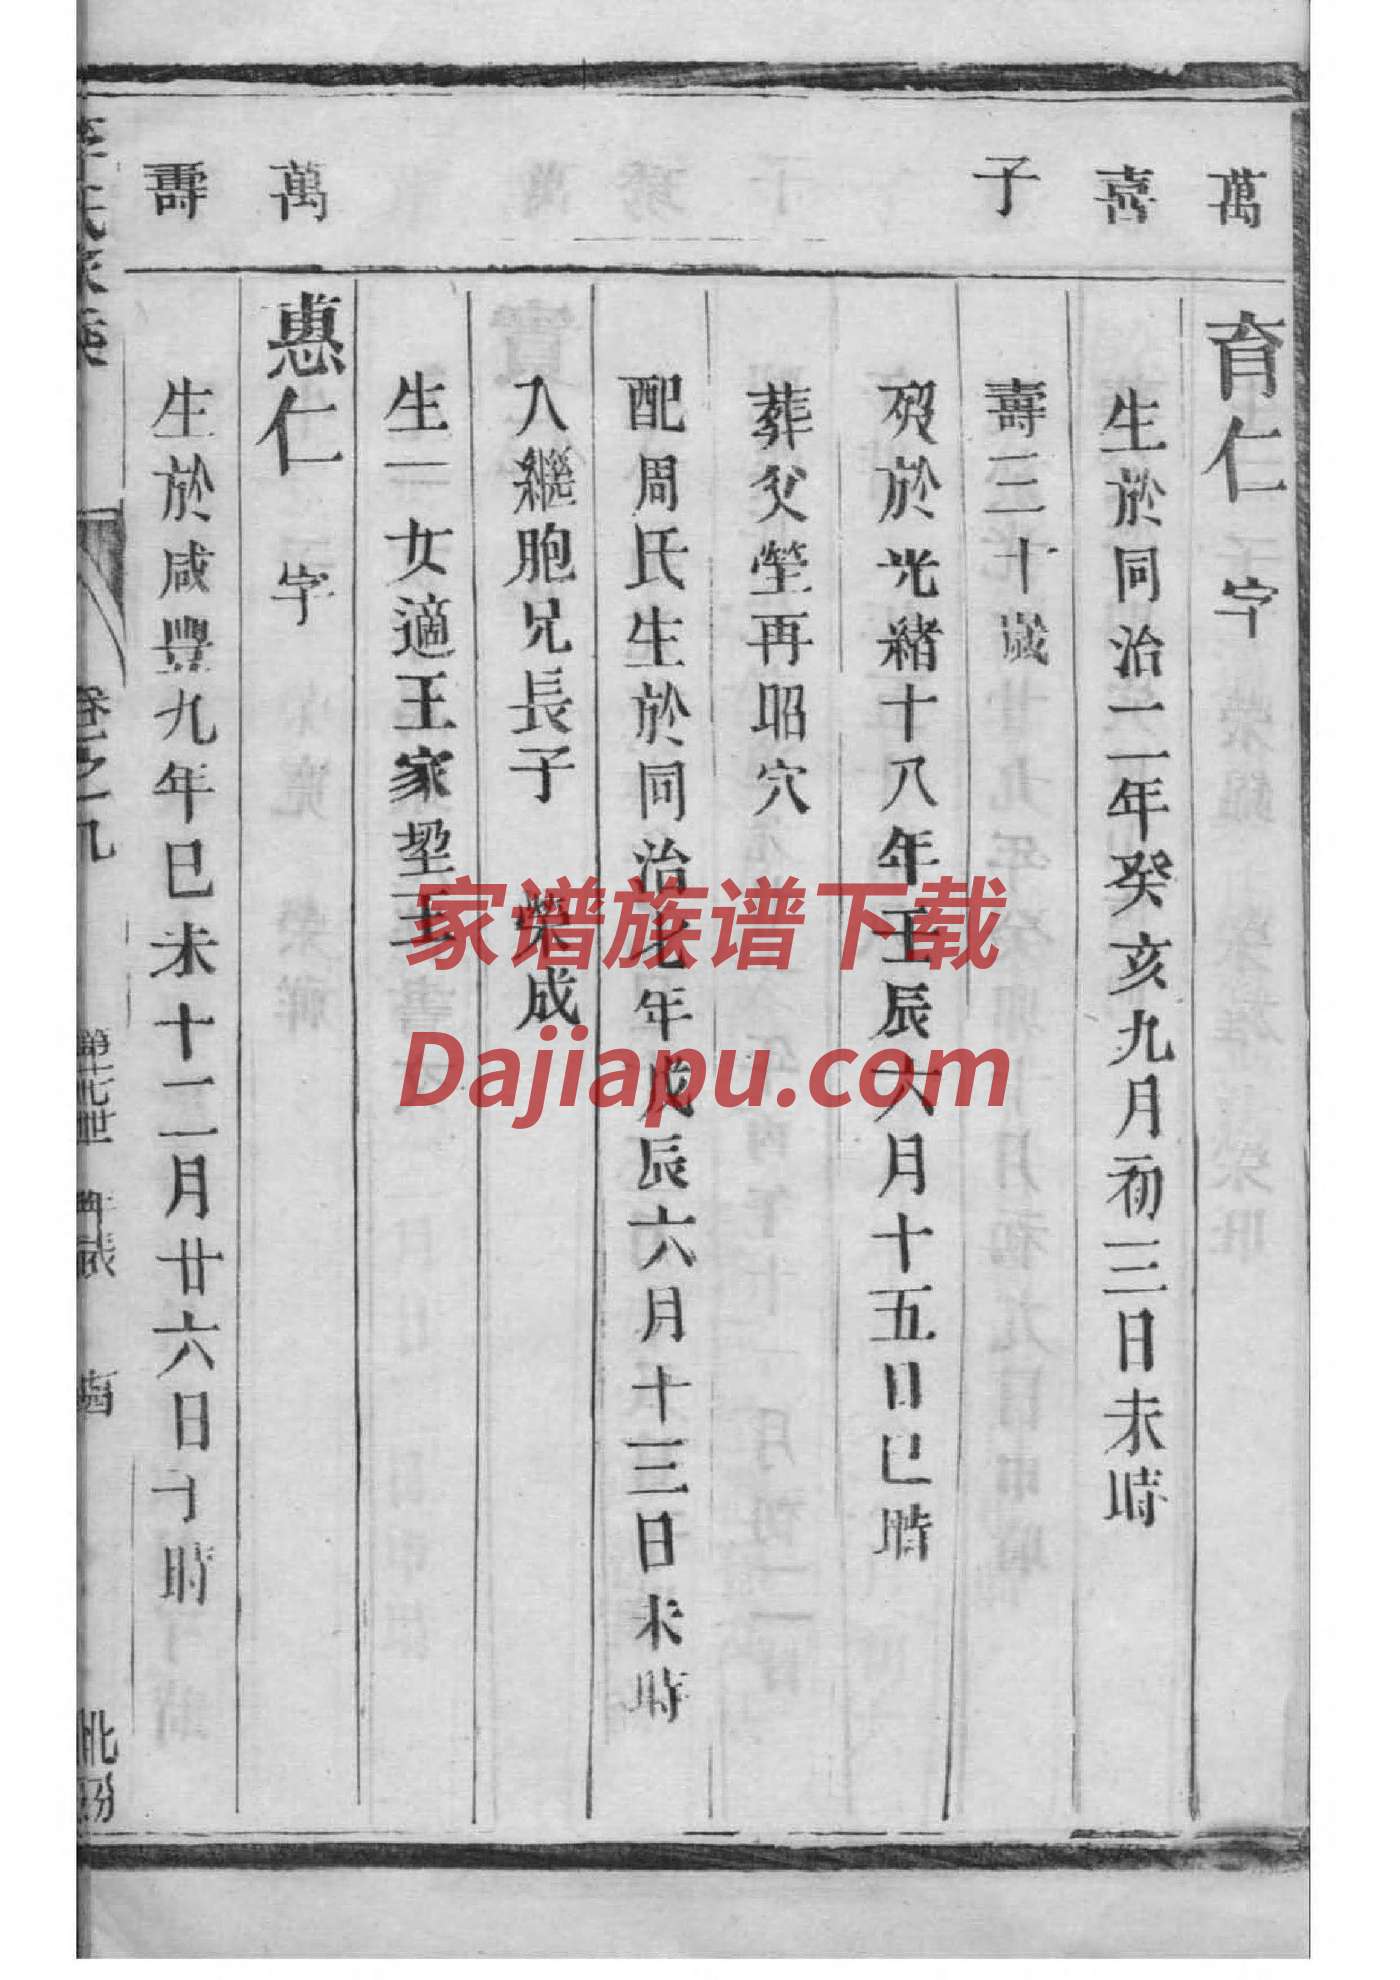 萬
喜
子
萬
壽
育仁字
生於同治二年癸亥九月初三日未時
壽三十歲
歿於光緒十八年壬辰六月十五日巳時
葬父塋再昭穴
配周氏生於同治七年戊辰六月十三日未時
入繼胞兄長子 榮成
生一女適王家㘭王
惠仁 字
生於咸豐九年巳未十二月廿六日子時
卷之九
家谱族谱下载
Dajiapu.com